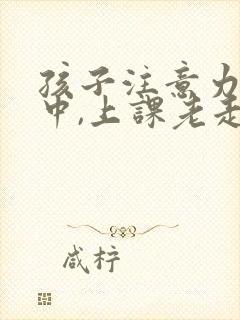 孩子注意力
中,上課老走
咸柠